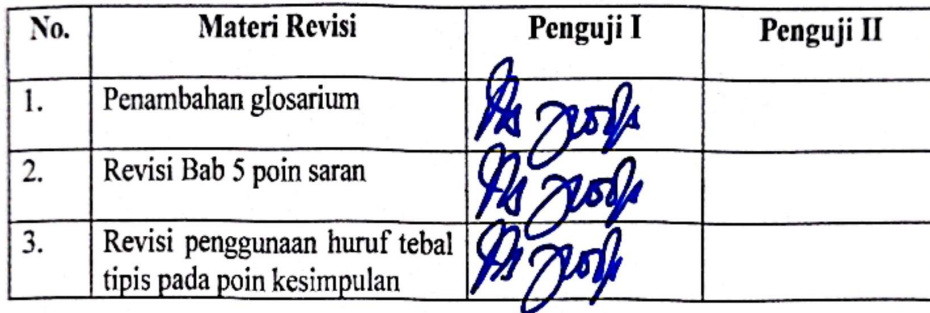 No. Materi Revisi Penguji I Penguji II
1. Penambahan glosarium
2. Revisi Bab 5 poin saran
3. Revisi penggunaan huruf tebal
tipis pada poin kesimpulan